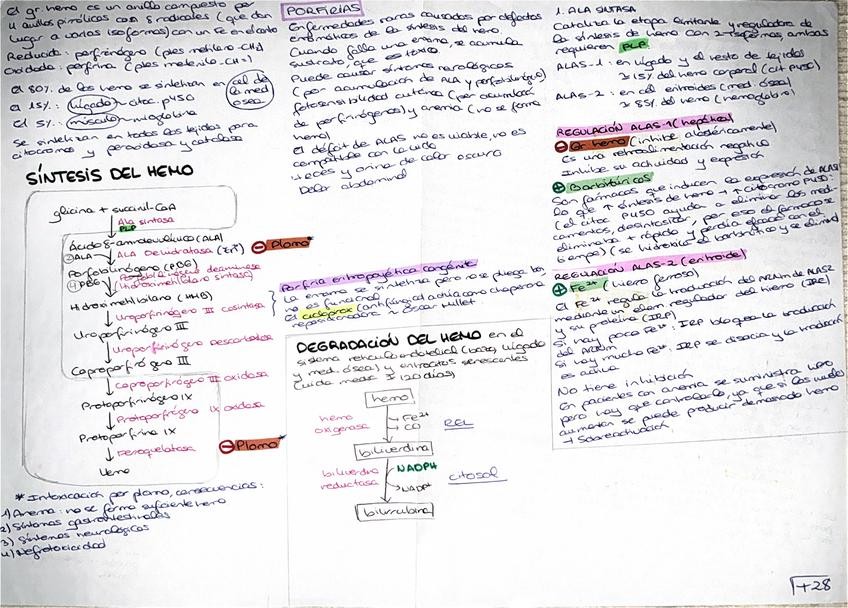 El gr. hemo es un anillo compuesto por
4 anillos pirrólicos con 8 radicales (que dan
lugar a varias isoformas) con un Fe en el centro
Reducida: porfirinógeno (ptes metileno -CH2)
Oxidada: porfirina (ptes metenilo -CH=)
El 80% de los hemo se sintetizan en cel de
la med
ósea
El 15%: hígado - citoc. p450
El 5%: músculo - mioglobina
Se sintetizan en todos los tejidos para
citocromos y peroxidasa y catalasa
SÍNTESIS DEL HEMO
glicina + succinil-CoA
Ala sintasa
PLP
Ácido δ-aminolevulínico (ALA)
2 ALA
ALA Dehidratasa (Zn2+)
⊖ Plomo*
Porfobilinógeno (PBG)
4 PBG
Porfobilinógeno deaminasa
(hidroximetilbilano sintasa)
Hidroximetilbilano (HMB)
Uroporfirinógeno III cosintasa
Uroporfirinógeno III
Uroporfirinógeno Descarboxilasa
Coproporfirinógeno III
Coproporfirinógeno III oxidasa
Protoporfirinógeno IX
Protoporfirinógeno IX oxidasa
Protoporfirina IX
Ferroquelatasa
⊖ Plomo*
Hemo
* Intoxicación por plomo, consecuencias:
1) Anemia: no se forma suficiente hemo
2) Síntomas gastrointestinales
3) Síntomas neurológicos
4) Nefrotoxicidad
PORFIRIAS
Enfermedades raras causadas por defectos
enzimáticos de la síntesis del hemo.
Cuando falla una enzima, se acumula
sustrato, que es tóxico
Puede causar síntomas neurológicos
(por acumulación de ALA y porfobilinógeno)
fotosensibilidad cutánea (por acumulación
de porfirinógenos) y anemia (no se forma
hemo)
El déficit de ALAS no es viable, no es
compatible con la vida
Heces y orina de color oscuro
Dolor abdominal
Porfiria eritropoyética congénita
La enzima se sintetiza pero no se pliega bien,
no es funcional
El ciclopirox (antifúngico) actúa como chaperona
reposicionadora ~ Óscar Millet
DEGRADACIÓN DEL HEMO en el
sistema retículo endotelial (bazo, hígado
y med. ósea) y eritrocitos senescentes
(vida media 120 días)
hemo
hemo
oxigenasa
Fe2+
CO
REL
biliverdina
biliverdina
reductasa
NADPH
NADP+
citosol
bilirrubina
1. ALA SINTASA
Cataliza la etapa limitante y reguladora de
la síntesis de hemo con 2 isoformas, ambas
requieren PLP
ALAS-1: en hígado y el resto de tejidos
≥ 15% del hemo corporal (cit. p450)
ALAS-2: en cel eritroides (med. ósea)
≥ 85% del hemo (hemoglobina)
REGULACIÓN ALAS-1 (hepática)
⊖ Gr hemo (inhibe alostéricamente)
Es una retroalimentación negativa
Inhibe su actividad y expresión
⊕ Barbitúricos
Son fármacos que inducen la expresión de ALAS1
lo que ↑ síntesis de hemo → ↑ citocromo p450.
(el citoc. p450 ayuda a eliminar los medi-
camentos, desintoxicar, por eso el fármaco se
eliminaba + rápido y perdía efecto con el
tiempo) (se hidroxila el barbitúrico y se elimina)
REGULACIÓN ALAS-2 (eritroide)
⊕ Fe2+ (hierro ferroso)
El Fe2+ regula la traducción del ARNm de ALAS2
mediante un elem. regulador del hierro (IRE)
y su proteína (IRP)
Si hay poco Fe2+: IRP bloquea la traducción
del ARNm
Si hay mucho Fe2+: IRP se disocia y la traducción
es activa
No tiene inhibición
En pacientes con anemia se suministra hierro
pero hay que controlarlo, ya que si los niveles
aumentan se puede producir demasiado hemo
→ sobreactivación
+28